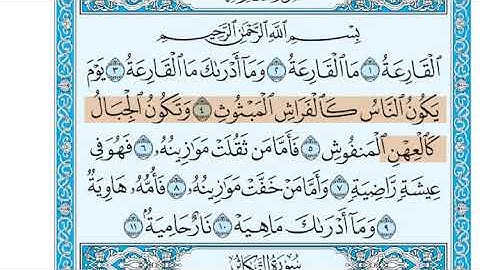 بِسْمِ اللَّهِ الرَّحْمَٰنِ الرَّحِيمِ
الْقَارِعَةُ ١ مَا الْقَارِعَةُ ٢ وَمَا أَدْرَىٰكَ مَا الْقَارِعَةُ ٣ يَوْمَ
يَكُونُ النَّاسُ كَالْفَرَاشِ الْمَبْثُوثِ ٤ وَتَكُونُ الْجِبَالُ
كَالْعِهْنِ الْمَنْفُوشِ ٥ فَأَمَّا مَن ثَقُلَتْ مَوَازِينُهُ ٦ فَهُوَ فِي
عِيشَةٍ رَّاضِيَةٍ ٧ وَأَمَّا مَنْ خَفَّتْ مَوَازِينُهُ ٨ فَأُمُّهُ هَاوِيَةٌ
٩ وَمَا أَدْرَىٰكَ مَا هِيَهْ ١٠ نَارٌ حَامِيَةٌ ١١
سُورَةُ التَّكَاثُرِ